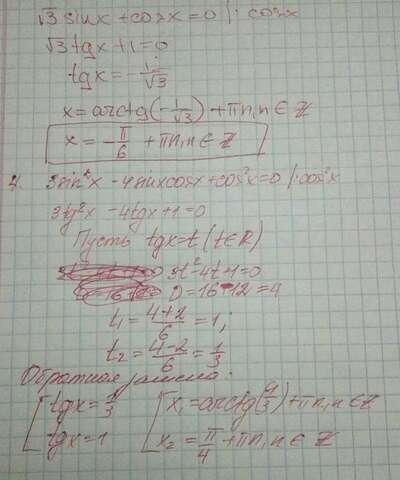 √3 sinx + cosx = 0 |: cosx
√3 tgx + 1 = 0
tgx = -1/√3
x = arctg(-1/√3) + πn, n ∈ Z
x = -π/6 + πn, n ∈ Z
4. 3sin²x - 4sinxcosx + cos²x = 0 |: cos²x
3tg²x - 4tgx + 1 = 0
Пусть tgx = t (t ∈ R)
3t² - 4t + 1 = 0
D = 16 - 12 = 4
t₁ = (4+2)/6 = 1;
t₂ = (4-2)/6 = 1/3
Обратная замена:
[ tgx = 1/3 [ x₁ = arctg(1/3) + πn, n ∈ Z
tgx = 1 x₂ = π/4 + πn, n ∈ Z